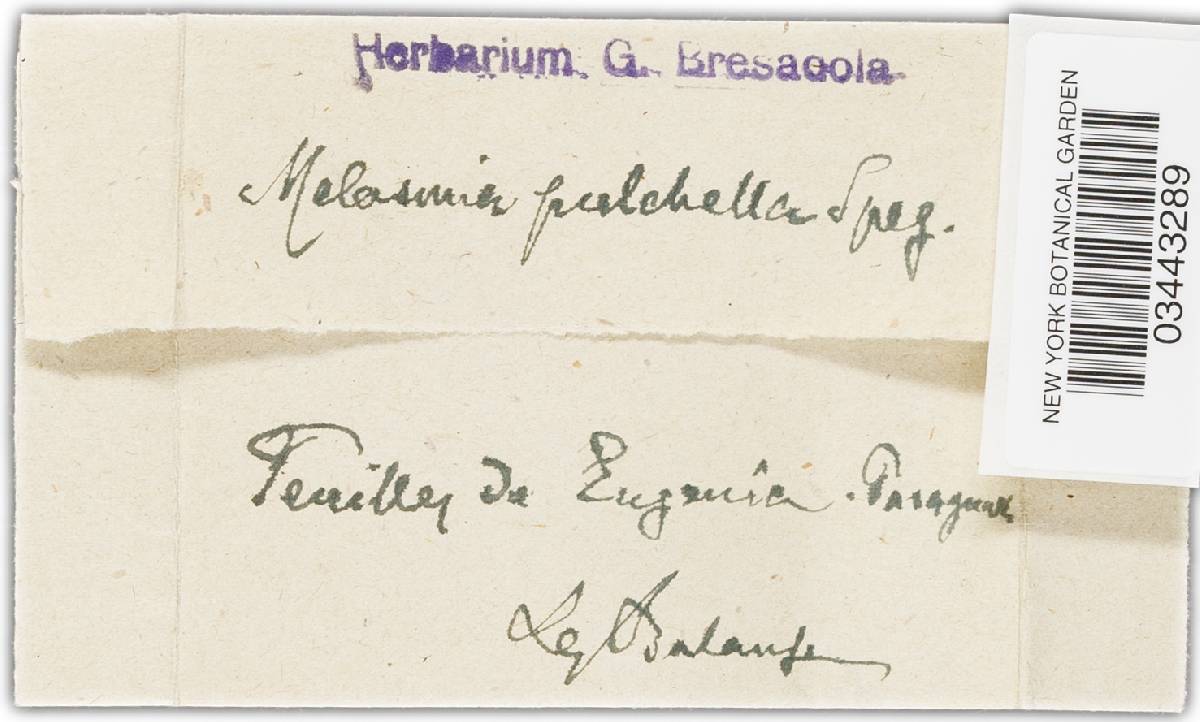 Herbarium G. Bresadola
Melasmia pulchella Speg.
Feuilles de Eugenia. Paraguay
Leg Balansa
NEW YORK BOTANICAL GARDEN
03443289